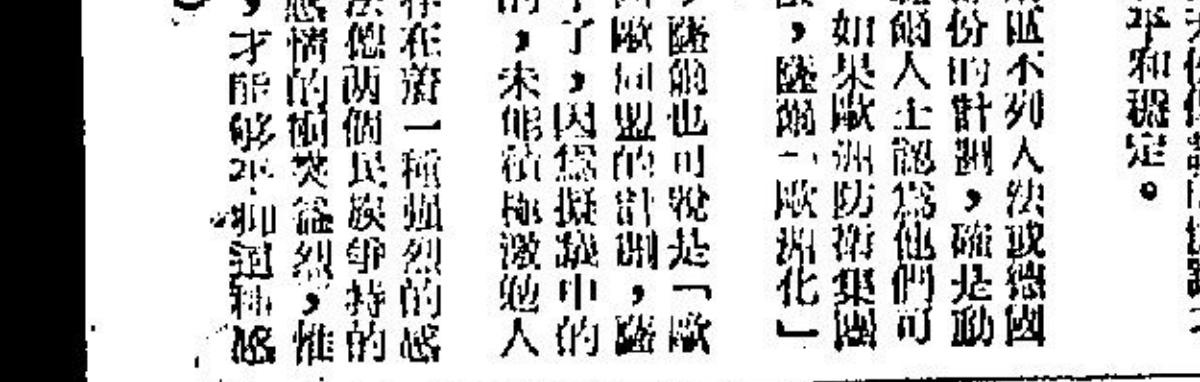 平和穩定。
區不列入法或德國
份的計劃，確是動
爾人士認爲他們可
如果歐洲防衛集團
，薩爾「歐洲化」
薩爾也可說是「歐
歐同盟的計劃，薩
了，因爲擬議中的
，未能積極激勉人
在着一種強烈的感
他兩個民族爭持的
情的衝突益烈，惟
，才能够平抑這種感